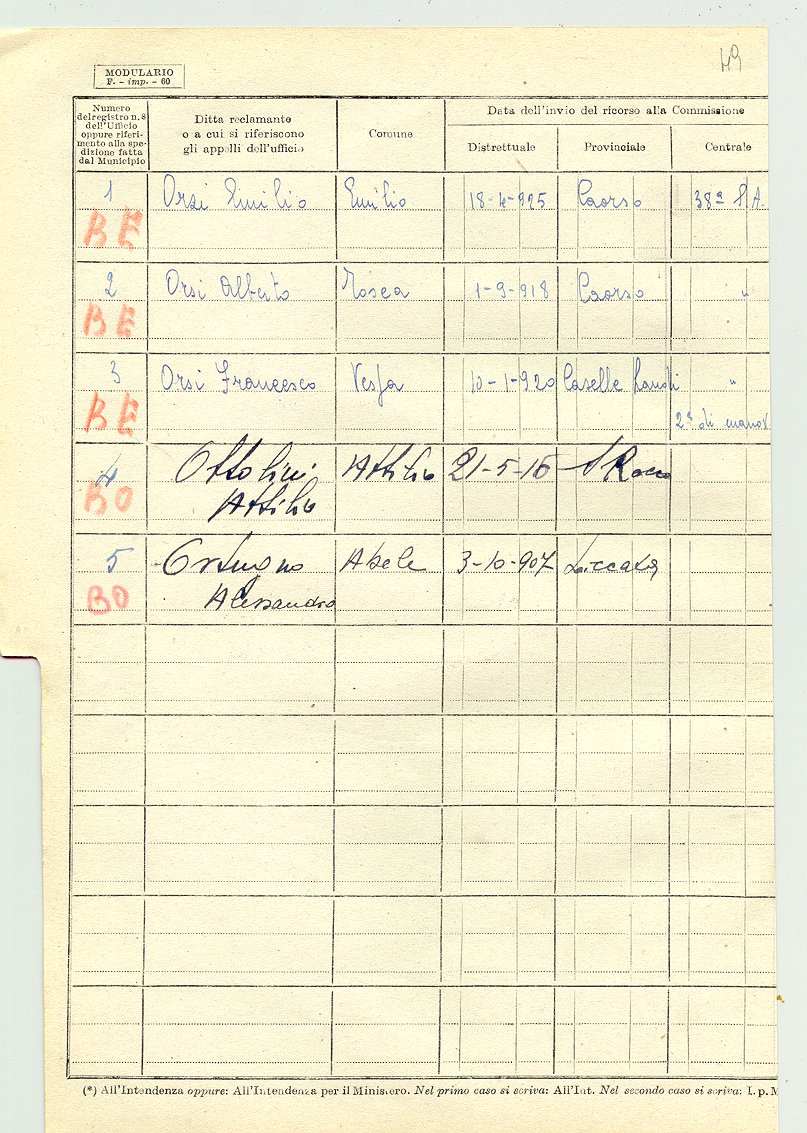 49
MODULARIO
F. - imp. - 60
Numero
del registro n. 8
dell'Ufficio
oppure riferi-
mento alla spe-
dizione fatta
dal Municipio
Ditta reclamante
o a cui si riferiscono
gli appelli dell'ufficio
Comune
Data dell'invio del ricorso alla Commissione
Distrettuale
Provinciale
Centrale
1 Orsi Emilio Emilio 18-4-925 Caorso 38ª S.A.
BE
2 Orsi Alberto Mosca 1-9-918 Caorso "
BE
3 Orsi Francesco Vespa 10-1-920 Caselle Landi "
BE 2ª di manov
4 Ottolini Attilio 21-5-16 S Rocco
BO Attilio
5 Abele 3-10-907
BO Alessandro
(*) All'Intendenza oppure: All'Intendenza per il Ministero. Nel primo caso si scriva: All'Int. Nel secondo caso si scriva: I. p. M